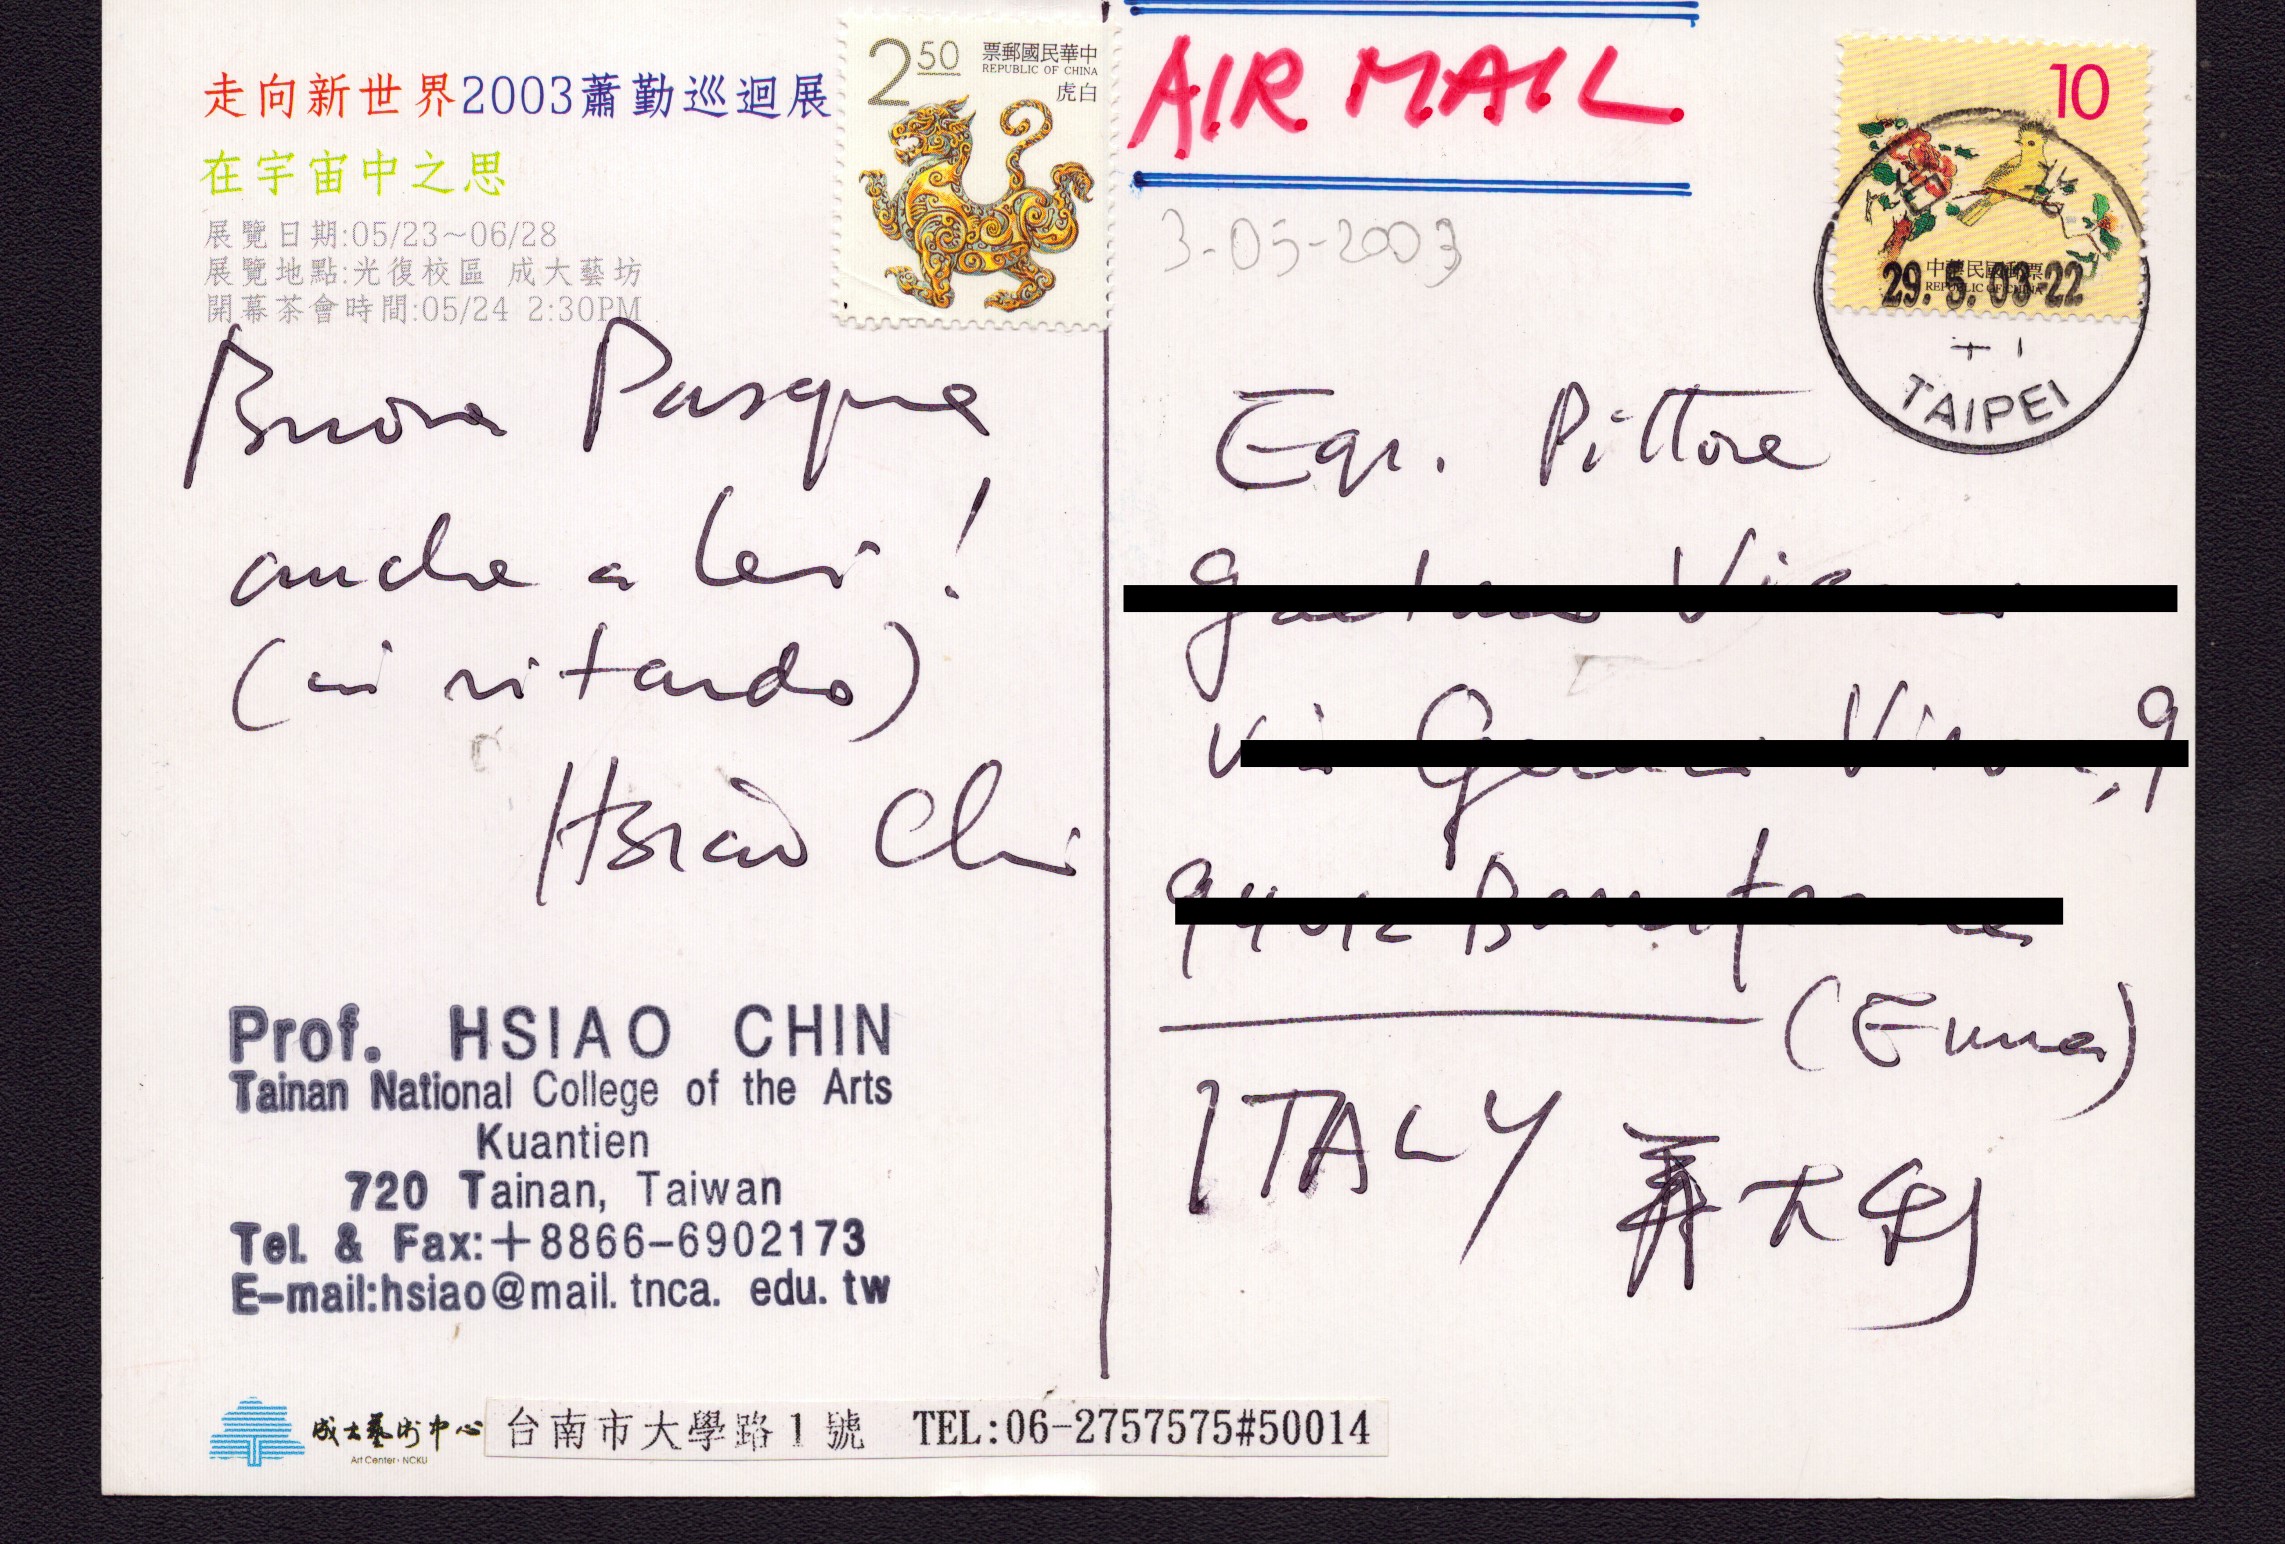 走向新世界2003蕭勤巡迴展
在宇宙中之思
展覽日期:05/23~06/28
展覽地點:光復校區 成大藝坊
開幕茶會時間:05/24 2:30PM
Buona Pasqua
anche a lei!
(in ritardo)
Hsiao Chin
Prof. HSIAO CHIN
Tainan National College of the Arts
Kuantien
720 Tainan, Taiwan
Tel. & Fax:+8866-6902173
E-mail:hsiao@mail.tnca.edu.tw
成大藝術中心
Art Center·NCKU
台南市大學路1號 TEL:06-2757575#50014
2.50
票郵國民華中
REPUBLIC OF CHINA
虎白
AIR MAIL
3-05-2003
10
中華民國郵票
REPUBLIC OF CHINA
29. 5. 03-22
TAIPEI
Egr. Pittore
(Enna)
ITALY 義大利